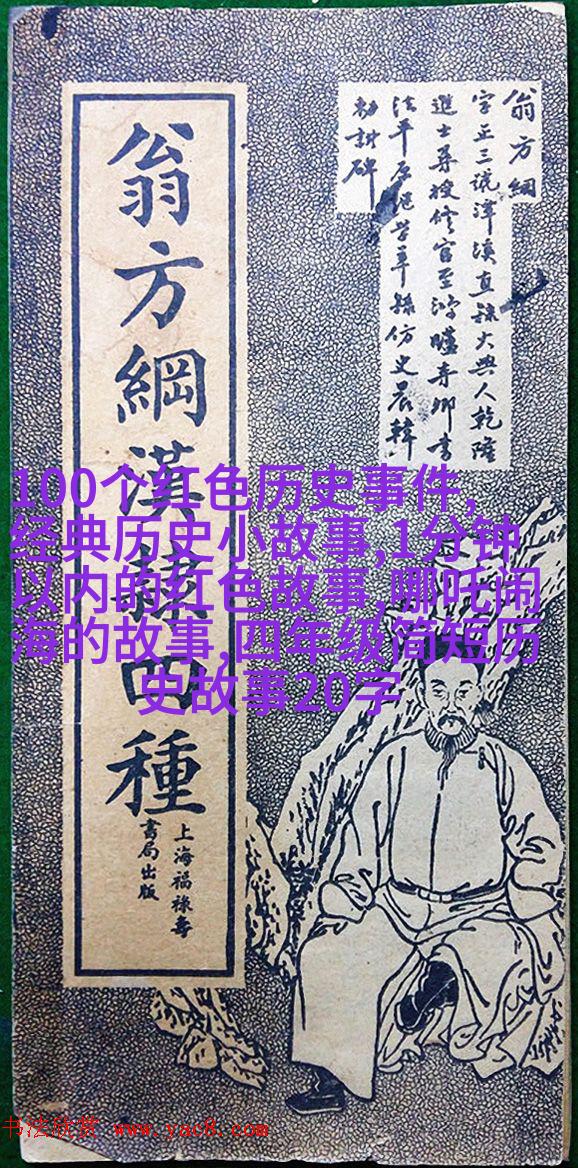 翁方綱
字正三號潭溪直隸大興人乾隆
進士尋授修官至鴻臚寺卿書
法平原繼昔率縣仿史晨韓
勑尌碑
翁方綱漢隸四種
上海福祿壽
書局出版
100个红色历史事件,
经典历史小故事,1分钟
以内的红色故事,哪吒闹
海的故事,四年级简短历
史故事20字
书法欣赏 www.yac8.com